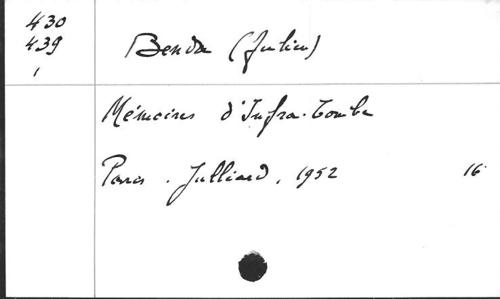 430
439
1
Benda (Julien)
Mémoires d'Infra-Tombe
Paris. Julliard, 1952 16